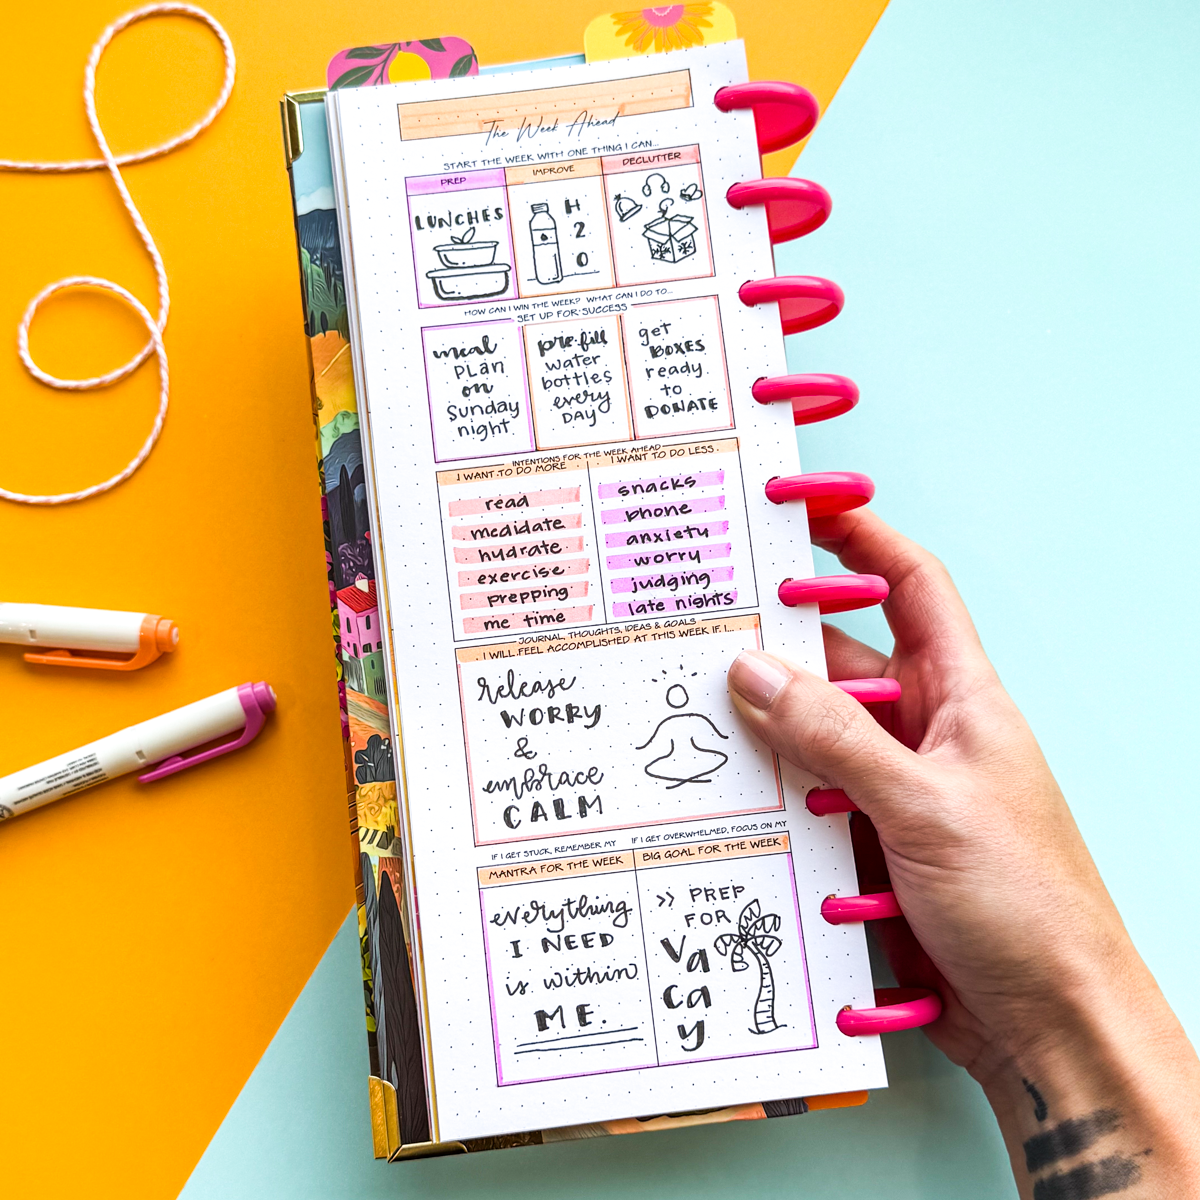 The Week Ahead
START THE WEEK WITH ONE THING I CAN...
PREP
IMPROVE
DECLUTTER
LUNCHES
H
2
O
HOW CAN I WIN THE WEEK? WHAT CAN I DO TO...
SET UP FOR SUCCESS
meal
PLAN
on
Sunday
night
pre-fill
water
bottles
every
DAY
get
BOXES
ready
to
DONATE
INTENTIONS FOR THE WEEK AHEAD
I WANT TO DO MORE
read
medidate
hydrate
exercise
prepping
me time
I WANT TO DO LESS
snacks
phone
anxiety
worry
judging
late nights
JOURNAL, THOUGHTS, IDEAS & GOALS
I WILL FEEL ACCOMPLISHED AT THIS WEEK IF I...
release
WORRY
&
embrace
CALM
IF I GET STUCK, REMEMBER MY
MANTRA FOR THE WEEK
everything
I NEED
is within
ME.
IF I GET OVERWHELMED, FOCUS ON MY
BIG GOAL FOR THE WEEK
>> PREP
FOR
Va
Ca
y